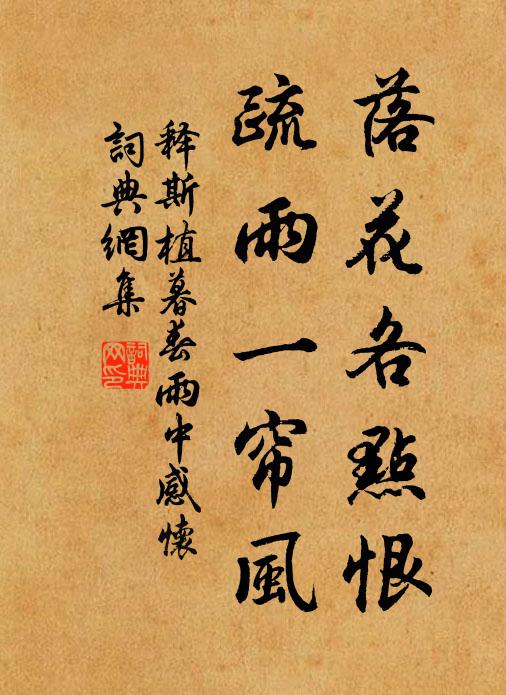 落花各點恨
疏雨一帘風
释斯植暮春雨中感懷
詞典網集
詞典網印